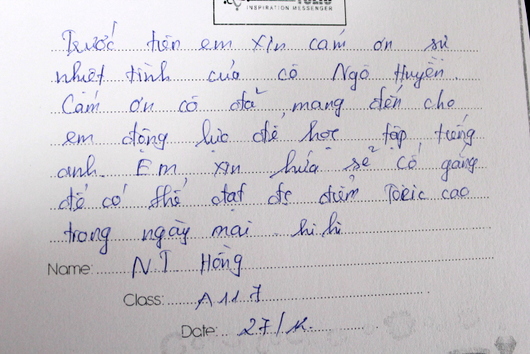 INSPIRATION MESSENGER
Trước tiên em xin cám ơn sự
nhiệt tình của cô Ngô Huyền.
Cảm ơn cô đã mang đến cho
em động lực để học tập tiếng
anh. Em xin hứa sẽ cố gắng
để có thể đạt đc điểm Toeic cao
trong ngày mai. hihi
Name: N.T Hồng
Class: A117
Date: 27/